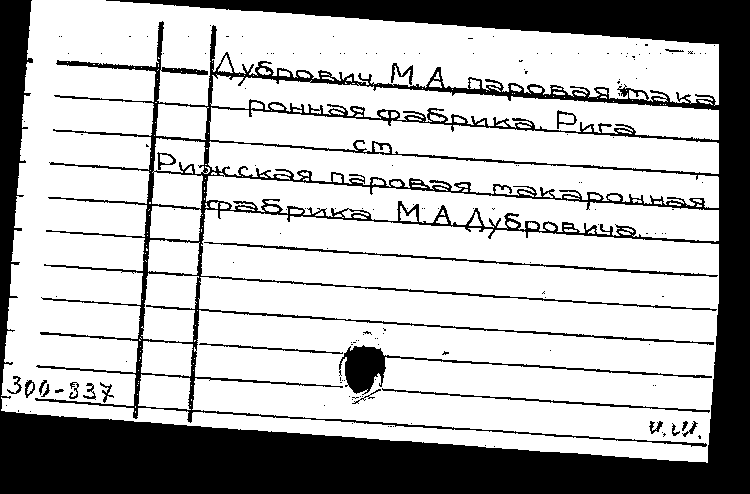 Дубрович, М.А., паровая мака
ронная фабрика. Рига
ст.
Рижская паровая макаронная
фабрика М.А. Дубровича.
300-337
и.ш.